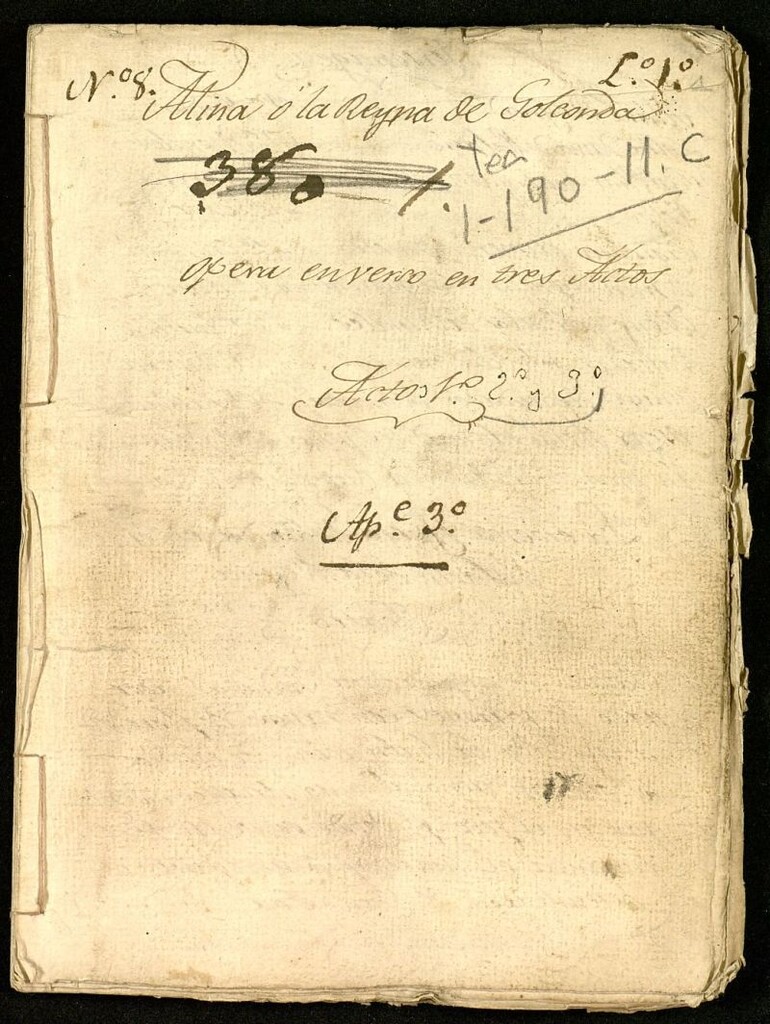 N.º 8. L.º 1.º
Alina ó la Reyna de Golconda
38. Tea
1-190-11. C
opera en verso en tres Actos
Actos 1.º 2.º y 3.º
Ap.e 3.º